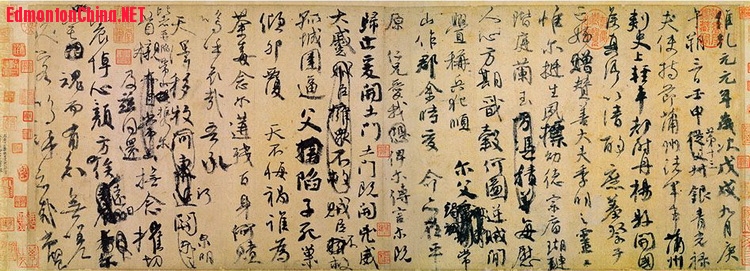 EdmontonChina.NET
維乾元元年歲次戊戌九月庚
午朔三日壬申第十三從父銀青光祿
夫使持節蒲州諸軍事蒲州
刺史上輕車都尉丹楊縣開國
侯真卿以清酌庶羞祭于
亡姪贈贊善大夫季明之靈曰
惟爾挺生夙標幼德宗廟瑚璉
階庭蘭玉每慰
人心方期戩穀何圖逆賊閒
釁稱兵犯順爾父竭誠常
山作郡余時受命亦在平
原仁兄愛我俾爾傳言爾既
歸止爰開土門土門既開凶威
大蹙賊臣不救
孤城圍逼父陷子死巢
傾卵覆天不悔禍誰為
荼毒念爾遘殘百身何贖
嗚呼哀哉吾承
天澤移牧河關泉明
比者再陷常山攜爾
首櫬及茲同還撫念摧切
震悼心顏方俟遠日
魂而有知無嗟
久客嗚呼哀哉尚饗